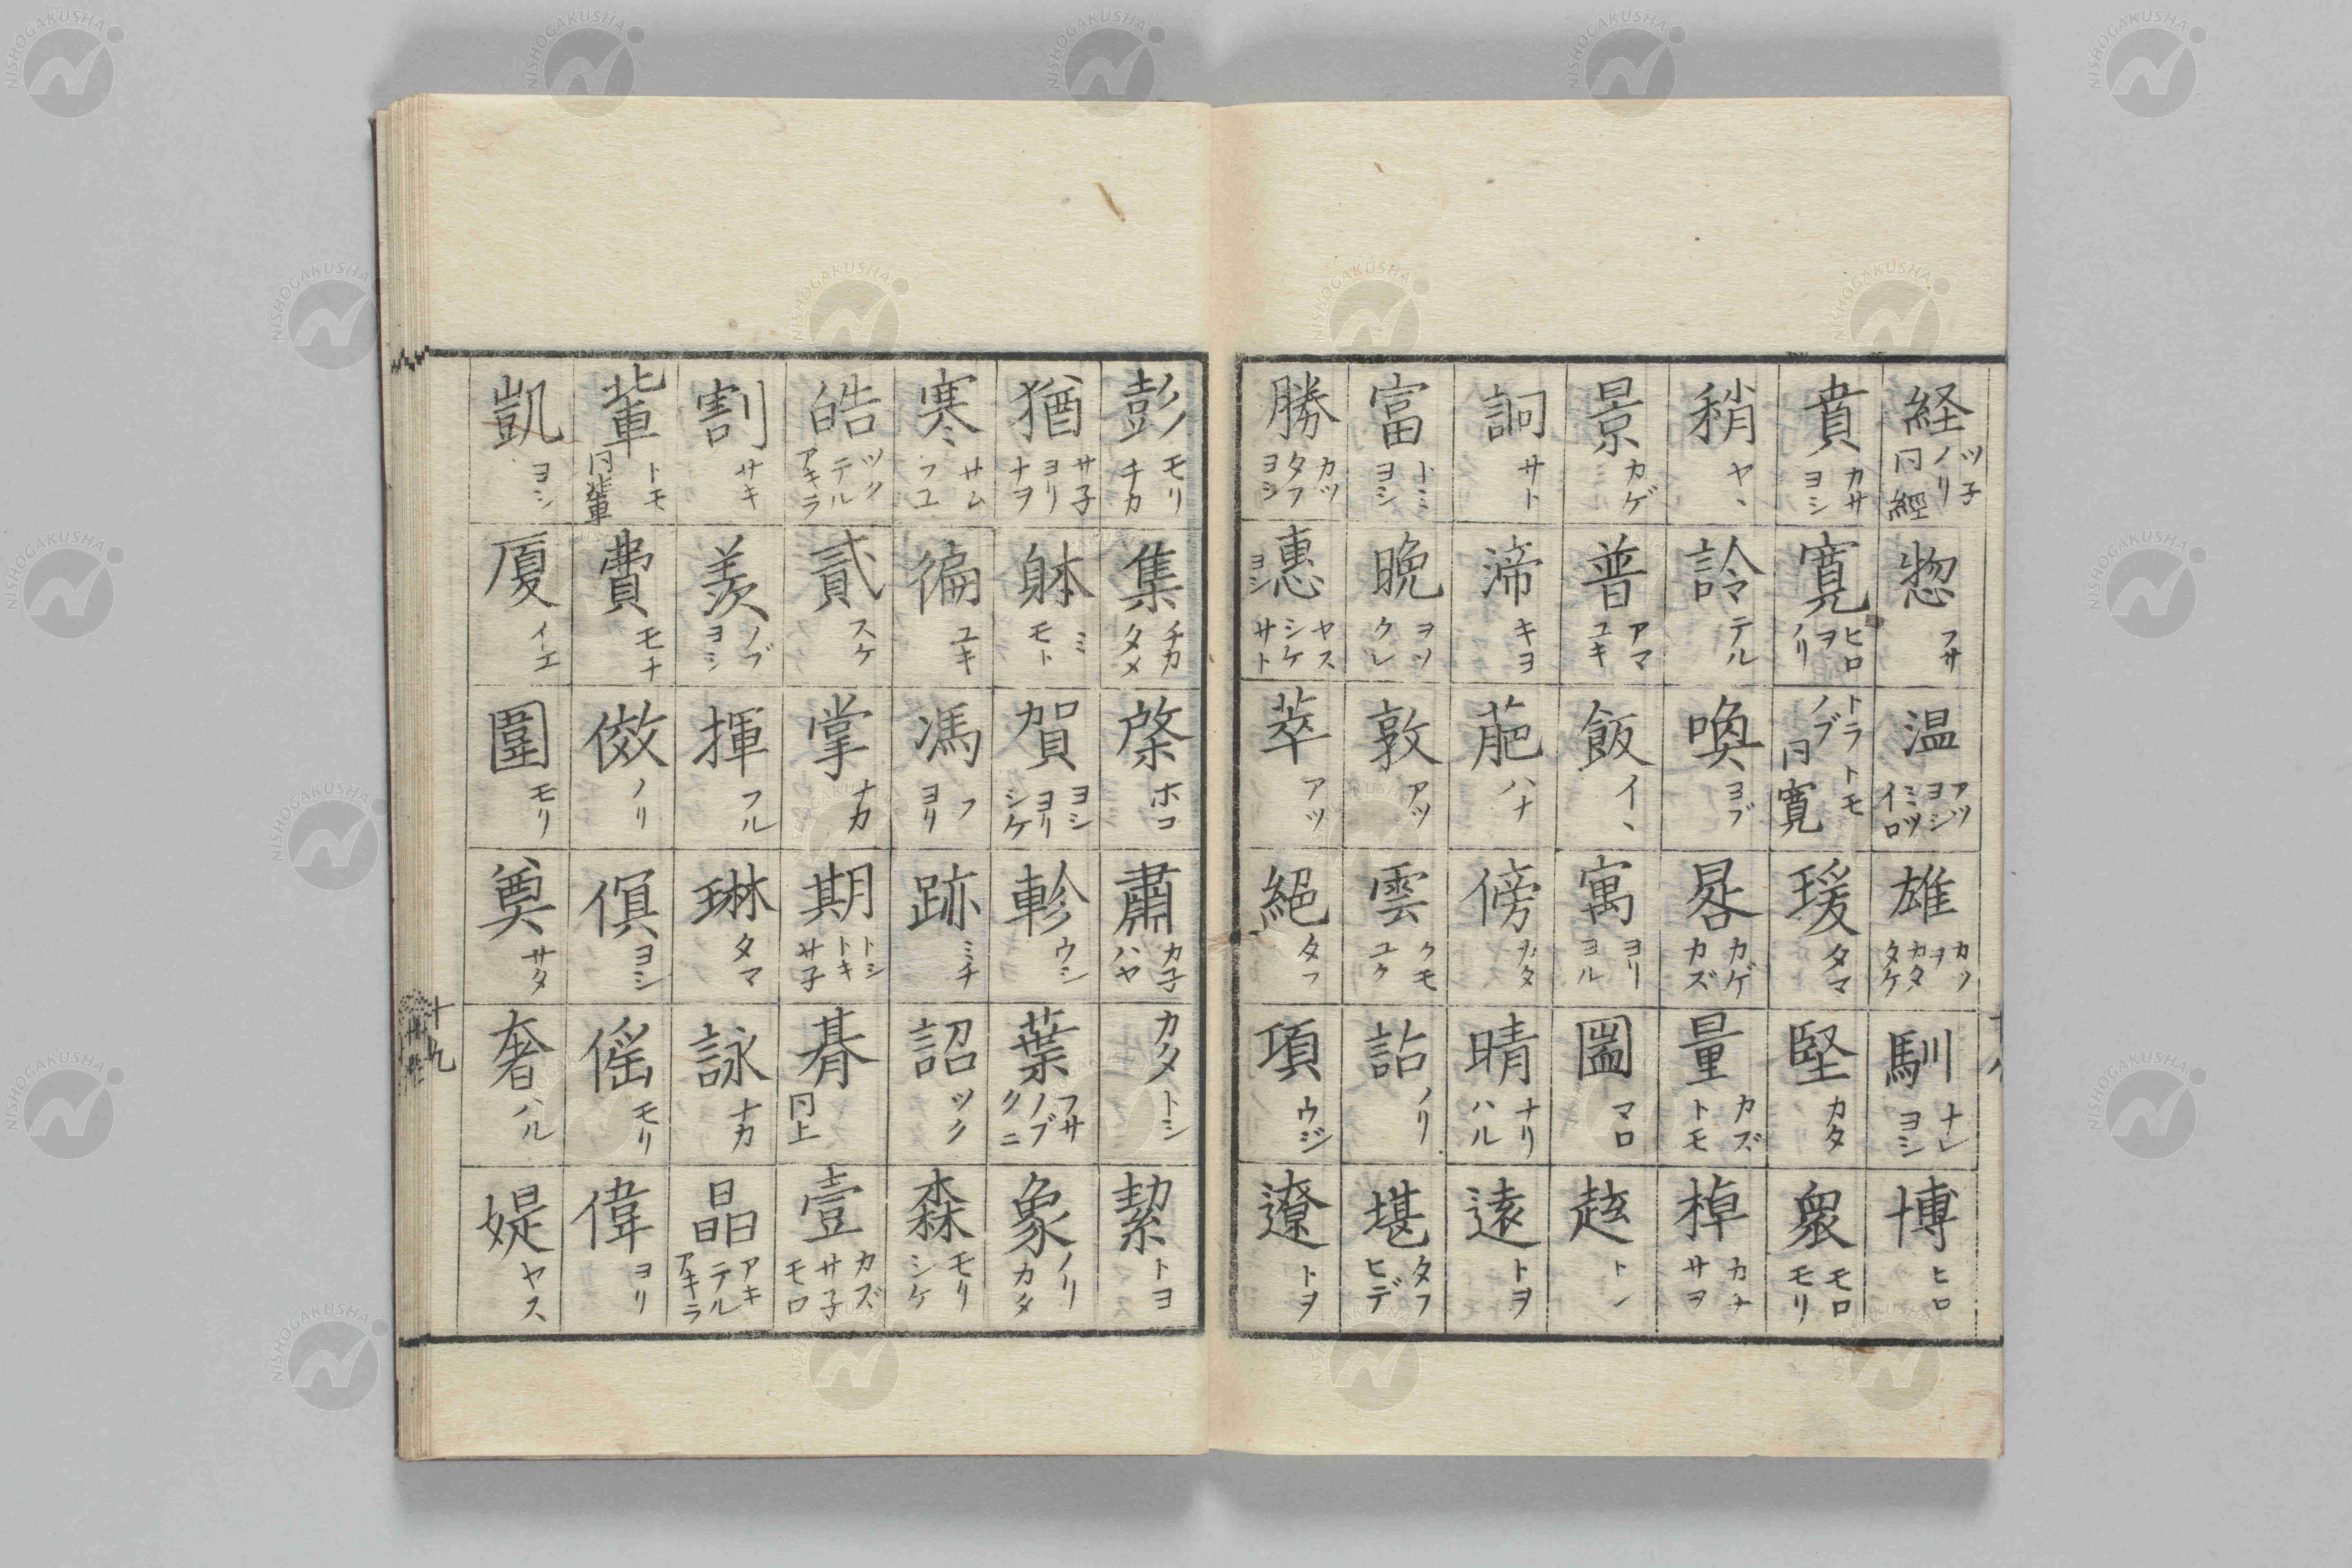 経 ツ子 ノリ 冋經
惣 フサ
温 アツ ヨシ ミツ イロ
雄 カツ ヲ カタ タケ
馴 ナレ ヨシ
博 ヒロ
賁 カサ ヨシ
寛 ヒロ ヲ ノリ トラ トモ ノブ 冋寛
瑗 タマ
堅 カタ
衆 モロ モリ
稍 ヤヽ
詅 テル
喚 ヨブ
晷 カゲ カズ
量 カズ トモ
棹 カナ サヲ
景 カゲ
普 アマ ユキ
飯 イヽ
寓 ヨリ ヨル
圌 マロ
詞 サト
渧 キヨ
葩 ハナ
傍 カタ
晴 ナリ ハル
遠 トヲ
富 トミ ヨシ
晩 ヲソ クレ
敦 アツ
雲 クモ ユク
詒 ノリ
堪 タフ ヒデ
勝 カツ タフ ヨシ
惠 ヤス シケ サト ヨシ
萃 アツ
絕 タフ
項 ウジ
遼 トヲ
十八
彭 モリ チカ
集 チカ タメ
棨 ホコ
肅 カ子 ハヤ カタ トシ
絜 トヨ
猶 サ子 ヨリ ナヲ
躰 ミ モト
賀 ヨシ ヨリ シケ
軫 ウシ
葉 フサ ノブ クニ
象 ノリ カタ
寒 サム フユ
徧 ユキ
馮 フ ヨリ
跡 ミチ
詔 ツク
森 モリ シケ
皓 ツク テル アキラ
貳 スケ
掌 ナカ
期 トシ トキ サ子
朞 冋上
壹 カズ サ子 モロ
割 サキ
羨 ノブ ヨシ
揮 フル
琳 タマ
詠 ナカ
晶 アキ テル アキラ
輩 トモ 冋輩
費 モチ
傚 ノリ
傊 ヨシ
傜 モリ
偉 ヨリ
凱 ヨシ
厦 イエ
圍 モリ
奠 サタ
奢 ハル
媞 ヤス
十九
NISHOGAKUSHA